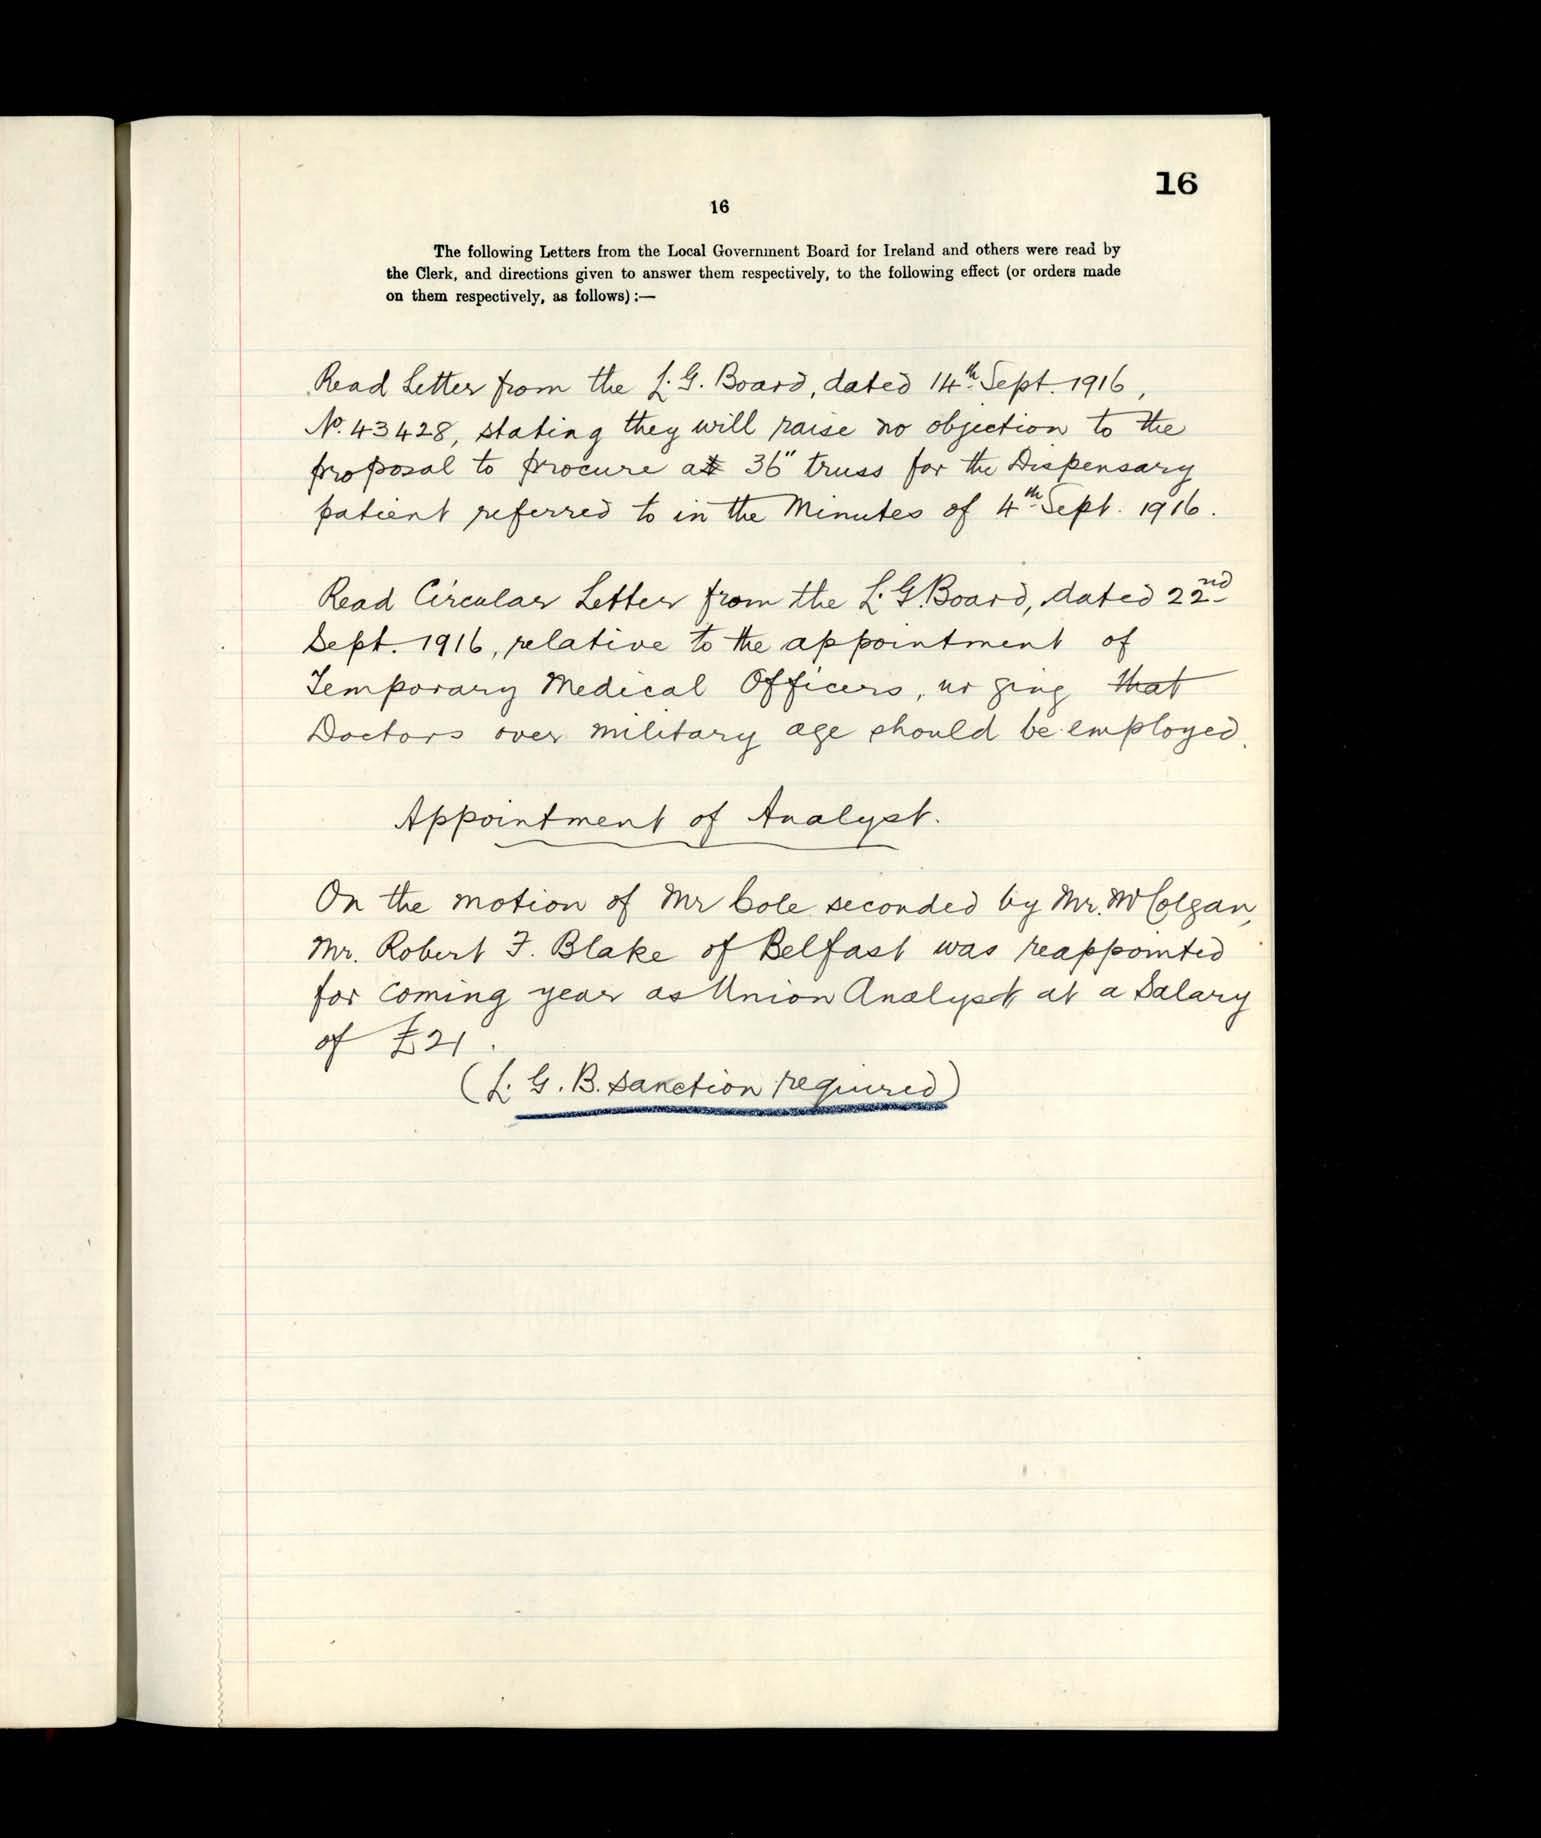 16
16
The following Letters from the Local Government Board for Ireland and others were read by
the Clerk, and directions given to answer them respectively, to the following effect (or orders made
on them respectively, as follows) :—
Read Letter from the L. G. Board, dated 14th Sept. 1916,
No. 43428, stating they will raise no objection to the
proposal to procure a 36" truss for the Dispensary
patient referred to in the Minutes of 4th Sept. 1916.
Read Circular Letter from the L. G. Board, dated 22nd
Sept. 1916, relative to the appointment of
Temporary Medical Officers, urging that
Doctors over military age should be employed.
Appointment of Analyst.
On the motion of Mr Cole seconded by Mr. McColgan,
Mr. Robert F. Blake of Belfast was reappointed
for coming year as Union Analyst at a Salary
of £21.
(L. G. B. sanction required)